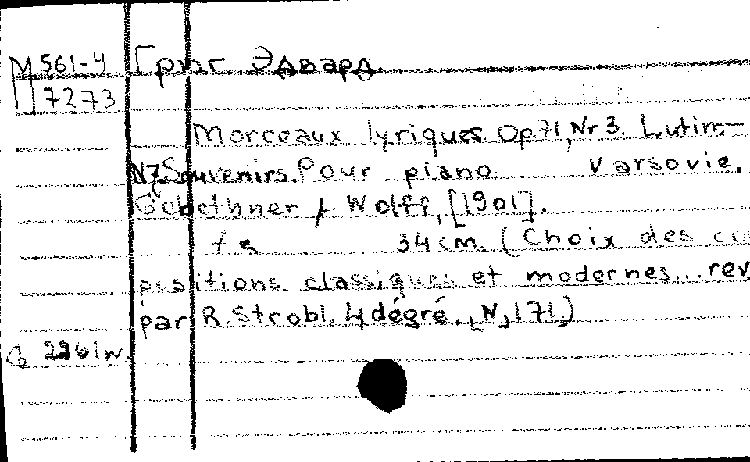 М 561-4 Григ Эдвард.
П 7273
Morceaux lyriques. Op 71, Nr 3. Lutin-
N7 Souvenirs. Pour piano. Varsovie,
Gebethner & Wolff, [1901].
34 cm. (Choix des
positions classiques et modernes... rev
par R. Strobl. 4 dégré., N, 171.)